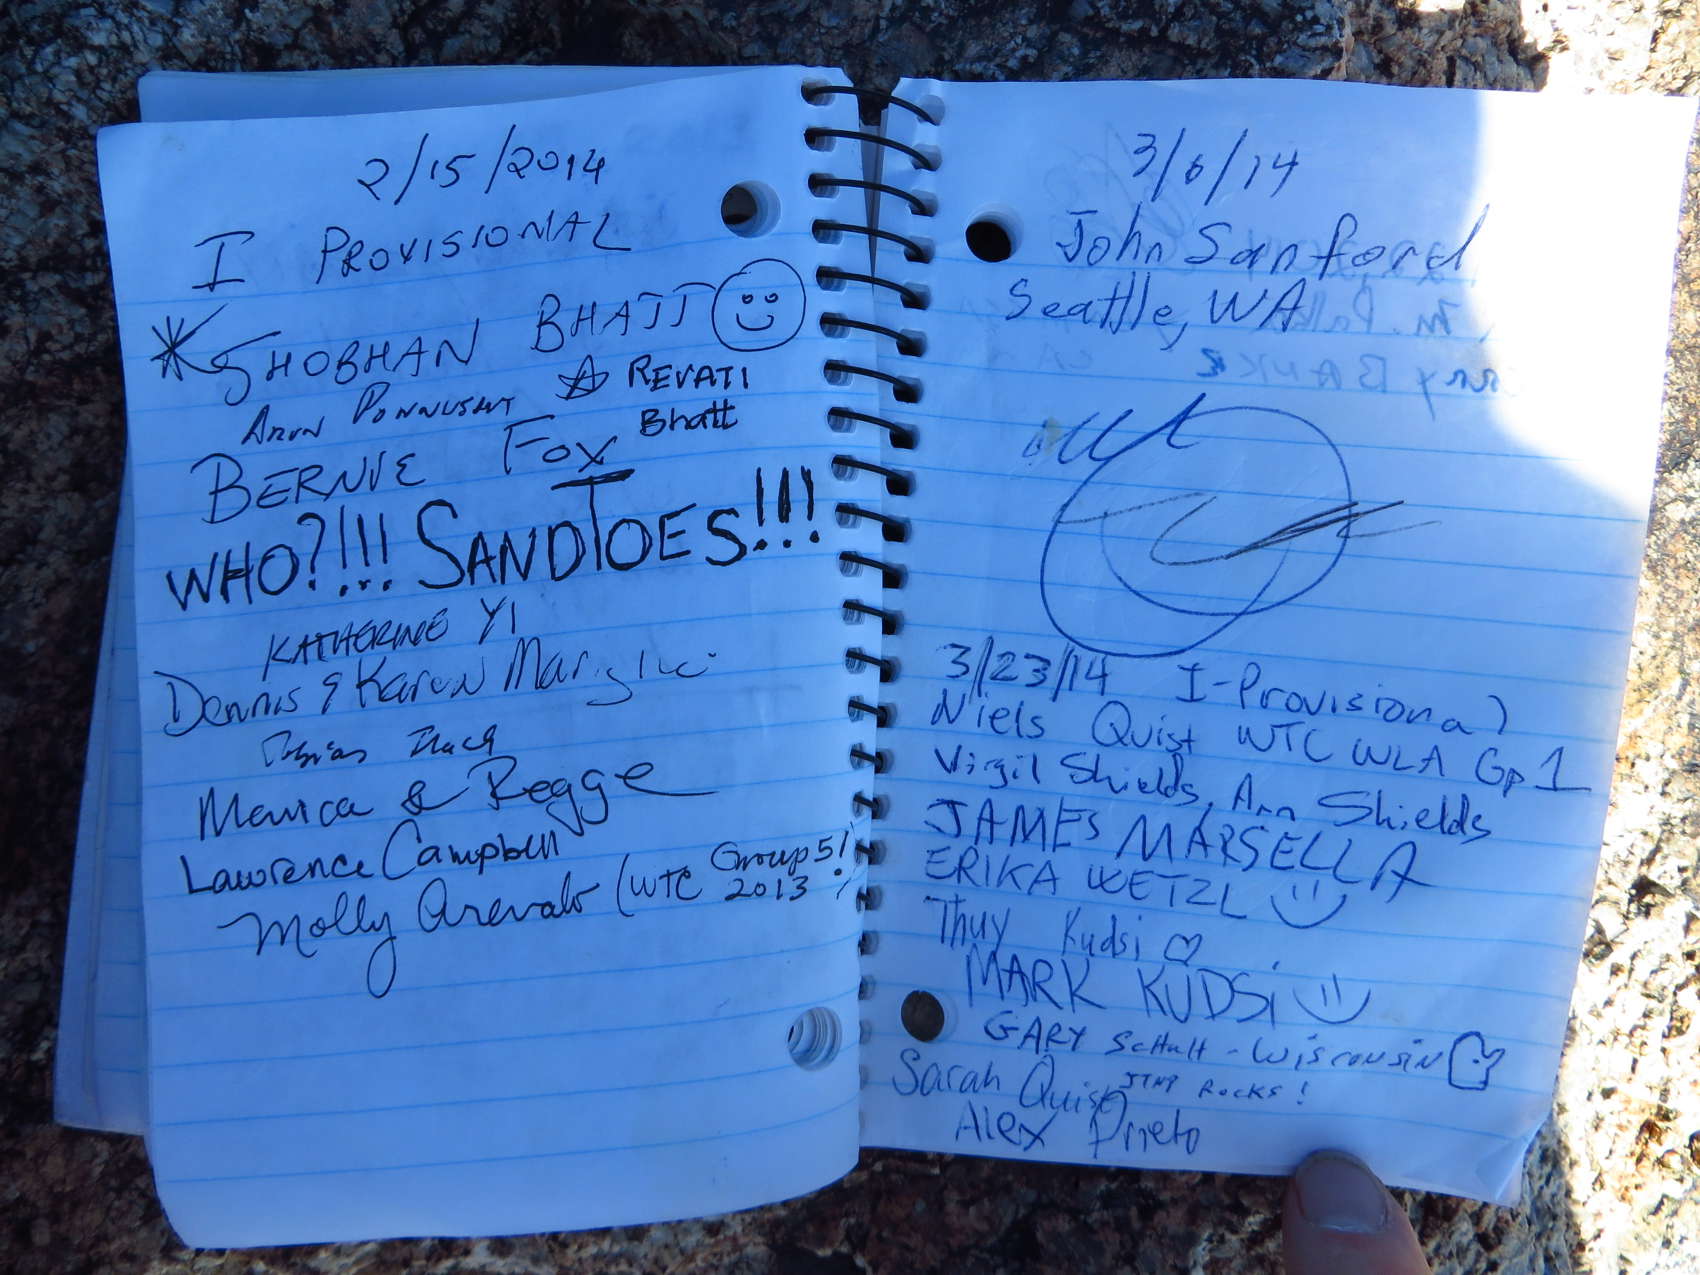 2/15/2014
I PROVISIONAL
SHOBHAN BHATT
ARUN PONNUSAMY REVATI
Bhatt
BERNIE FOX
WHO?!!! SANDTOES!!!
KATHERINE YI
Dennis & Karen
Monica & Regge
Lawrence Campbell
Molly Arevalo (WTC Group 5!
2013
3/6/14
John Sanford
Seattle, WA
3/23/14 I-Provisional
Niels Quist WTC WLA Gp 1
Virgil Shields, Ann Shields
JAMES MARSELLA
ERIKA WETZL
Thuy Kudsi
MARK KUDSi
GARY Schult - Wisconsin
JTNP ROCKS!
Sarah Quist
Alex Prieto